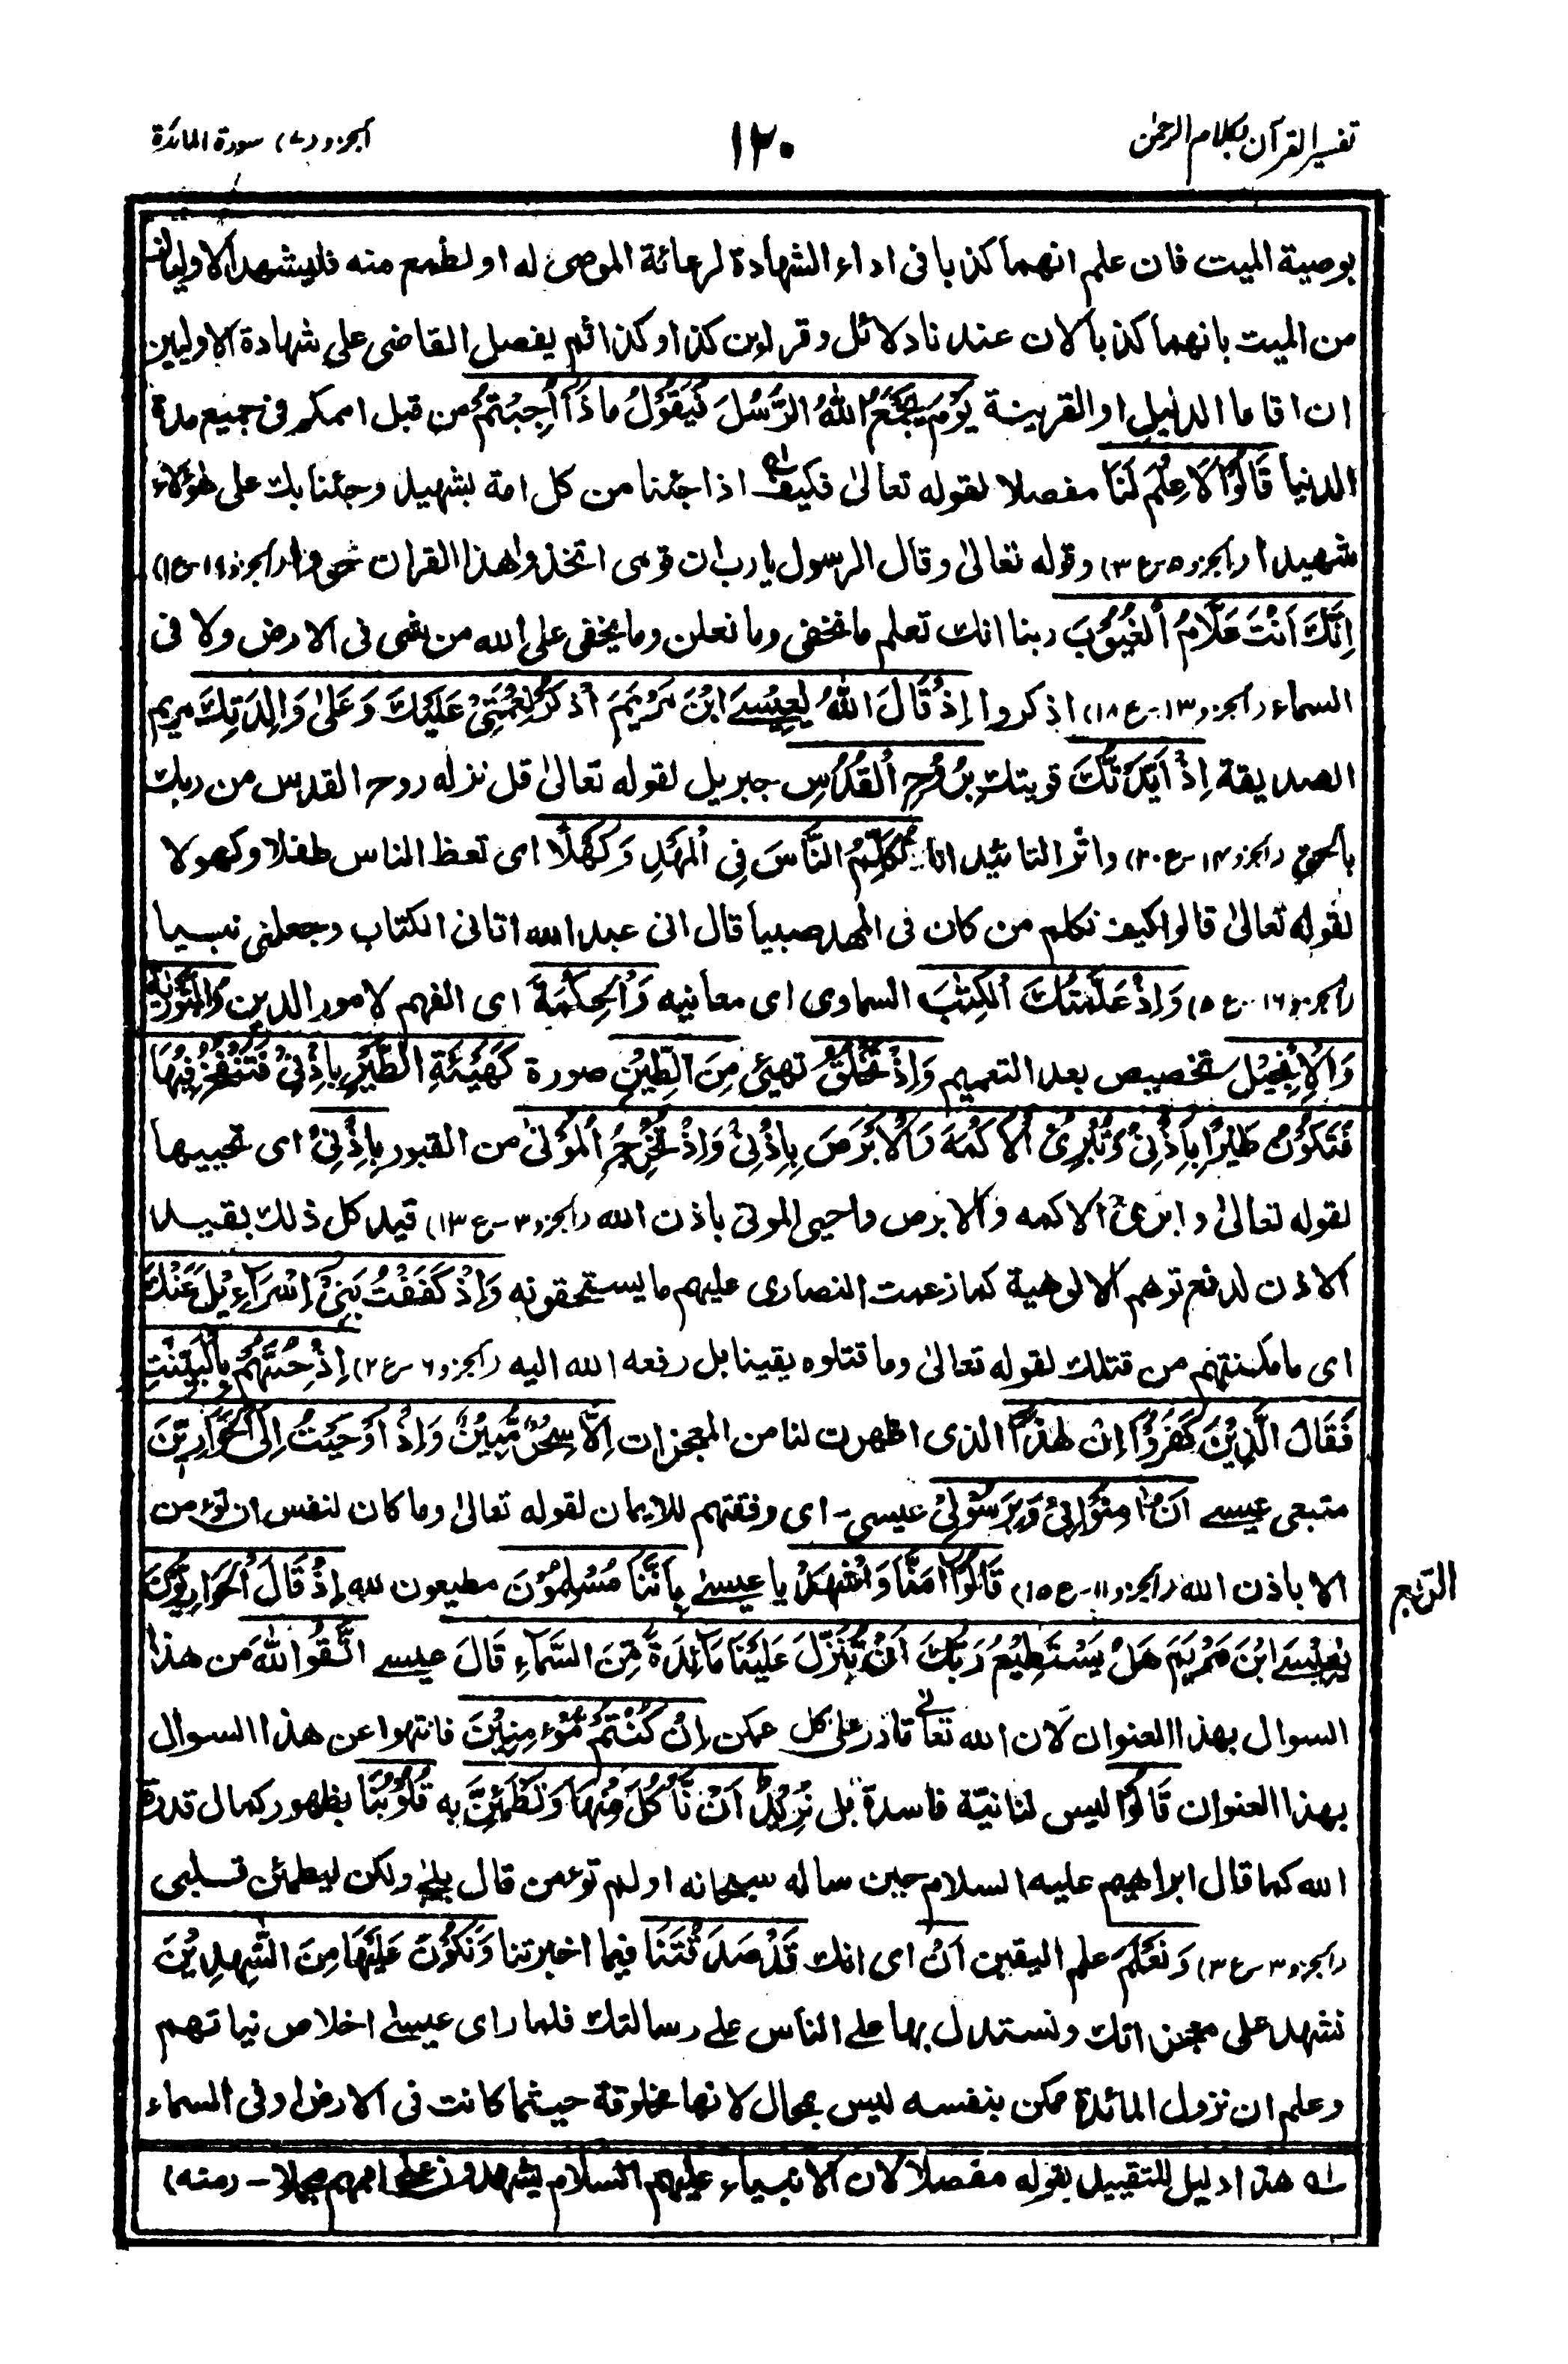 تفسير القرآن بكلام الرحمٰن
١٢٠
الجزو (٧) سورة المائدة
بوصية الميت فان علم انهما كذبا فى اداء الشهادة لرعائة الموصى له او لطمع منه فليشهد الاوليان
من الميت بانهما كذبا لان عندنا دلائل وقرائن كذا وكذا ثم يفصل القاضى على شهادة الاوليين
ان اقاما الدليل او القرينة يَوْمَ يَجْمَعُ اللهُ الرُّسُلَ فَيَقُوْلُ مَا ذَآ اُجِبْتُمْ من قبل اممكم فى جميع مدة
الدنيا قَالُوْا لَا عِلْمَ لَنَا مفصلا لقوله تعالىٰ فكيف اذا جئنا من كل امة بشهيد وجئنا بك على هٰؤلاء
شهيدا (الجزو ٥-ع ٣) وقوله تعالىٰ وقال الرسول يارب ان قومى اتخذوا هذا القران مهجورا (الجزو ١٩-ع ١)
اِنَّكَ اَنْتَ عَلَّامُ الْغُيُوْبَ ربنا انك تعلم ما نخفى وما نعلن وما يخفى على الله من شىء فى الارض ولا فى
السماء (الجزو ١٣-ع ١٨) اذكروا اِذْ قَالَ اللهُ يٰعِيْسَے ابْنَ مَرْيَمَ اذْكُرْ نِعْمَتِيْ عَلَيْكَ وَعَلىٰ وَالِدَتِكَ مريم
الصديقة اِذْ اَيَّدْتُّكَ قويتك بِرُوْحِ الْقُدُسِ جبريل لقوله تعالىٰ قل نزله روح القدس من ربك
بالحق (الجزو ١٤-ع ٢٠) واثر التائيد انك تُكَلِّمُ النَّاسَ فِى الْمَهْدِ وَكَهْلًا اى تعظ الناس طفلا وكهولا
لقوله تعالىٰ قالوا كيف نكلم من كان فى المهد صبيا قال انى عبد الله اتانى الكتاب وجعلنى نبيا
(الجزو ١٦-ع ٥) وَاِذْ عَلَّمْتُكَ الْكِتٰبَ السماوى اى معانيه وَالْحِكْمَةَ اى الفهم لامور الدين وَالتَّوْرٰىةَ
وَالْاِنْجِيْلَ تخصيص بعد التعميم وَاِذْ تَخْلُقُ تهيئ مِنَ الطِّيْنِ صورة كَهَيْئَةِ الطَّيْرِ بِاِذْنِيْ فَتَنْفُخُ فِيْهَا
فَتَكُوْنُ طَيْرًا بِاِذْنِيْ وَتُبْرِئُ الْاَكْمَهَ وَالْاَبْرَصَ بِاِذْنِيْ وَاِذْ تُخْرِجُ الْمَوْتىٰ من القبور بِاِذْنِيْ اى تحييها
لقوله تعالىٰ و ابرئ الاكمه والابرص واحيى الموتى باذن الله (الجزو ٣-ع ١٣) قيد كل ذلك بقيد
الاذن لدفع توهم الالوهية كما زعمت النصارى عليهم ما يستحقونه وَاِذْ كَفَفْتُ بَنِيْ اِسْرَآءِيْلَ عَنْكَ
اى ما مكنتهم من قتلك لقوله تعالىٰ وما قتلوه يقينا بل رفعه الله اليه (الجزو ٦-ع ٢) اِذْ جِئْتَهُمْ بِالْبَيِّنٰتِ
فَقَالَ الَّذِيْنَ كَفَرُوْا اِنْ هٰذَا الذى اظهرت لنا من المعجزات اِلَّا سِحْرٌ مُّبِيْنٌ وَاِذْ اَوْحَيْتُ اِلَى الْحَوَارِيّٖنَ
متبعى عيسے اَنْ اٰمِنُوْا بِىْ وَبِرَسُوْلِىْ عيسى - اى وفقتهم للايمان لقوله تعالىٰ وما كان لنفس ان تؤمن
الا باذن الله (الجزو ١١-ع ١٥) قَالُوْا اٰمَنَّا وَاشْهَدْ يا عيسىٰ بِاَنَّنَا مُسْلِمُوْنَ مطيعون لله اِذْ قَالَ الْحَوَارِيُّوْنَ
الربع
يٰعِيْسَے ابْنَ مَرْيَمَ هَلْ يَسْتَطِيْعُ رَبُّكَ اَنْ يُّنَزِّلَ عَلَيْنَا مَآئِدَةً مِّنَ السَّمَآءِ قَالَ عيسے اتَّقُوا اللهَ من هذا
السوال بهذا العنوان لان الله تعالىٰ قادر على كل ممكن اِنْ كُنْتُمْ مُّؤْمِنِيْنَ فانتهوا عن هذا السوال
بهذا العنوان قَالُوْا ليس لنا نيّة فاسدة بل نُرِيْدُ اَنْ نَّأْكُلَ مِنْهَا وَتَطْمَئِنَّ به قُلُوْبُنَا بظهور كمال قدرة
الله كما قال ابراهيم عليه السلام حين ساله سبحانه اولم تؤمن قال بلىٰ ولكن ليطمئن قلبى
(الجزو ٣-ع ٣) وَنَعْلَمَ علم اليقين اَنْ اى انك قَدْ صَدَقْتَنَا فيما اخبرتنا وَنَكُوْنَ عَلَيْهَا مِنَ الشّٰهِدِيْنَ
نشهد على معجزاتك ونستدل بها على الناس على رسالتك فلما راى عيسىٰ اخلاص نياتهم
وعلم ان نزول المائدة ممكن بنفسه ليس بمحال لانها مخلوقة حيثما كانت فى الارض او فى السماء
له هذا دليل للتقييد بقوله مفصلا لان الانبياء عليهم السلام يشهدون على اممهم مجملا - (منه)